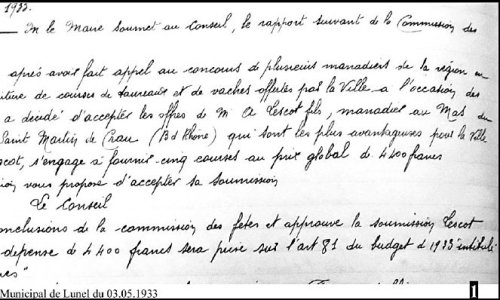 1933.
M le Maire soumet au Conseil, le rapport suivant de la Commission des
après avoir fait appel au concours de plusieurs manadiers de la région en
iture de courses de taureaux et de vaches offertes par la Ville à l'occasion des
a décidé d'accepter les offres de M A Lescot fils, manadier au Mas du
Saint Martin de Crau (Bd Rhône) qui sont les plus avantageuses pour la Ville
scot, s'engage à fournir cinq courses au prix global de 4400 francs
ion vous propose d'accepter sa soumission
Le Conseil
onclusions de la commission des fêtes et approuve la soumission Lescot
dépense de 4400 francs sera prise sur l'art 81 du budget d 1933 intitulé
es"
Municipal de Lunel du 03.05.1933
1